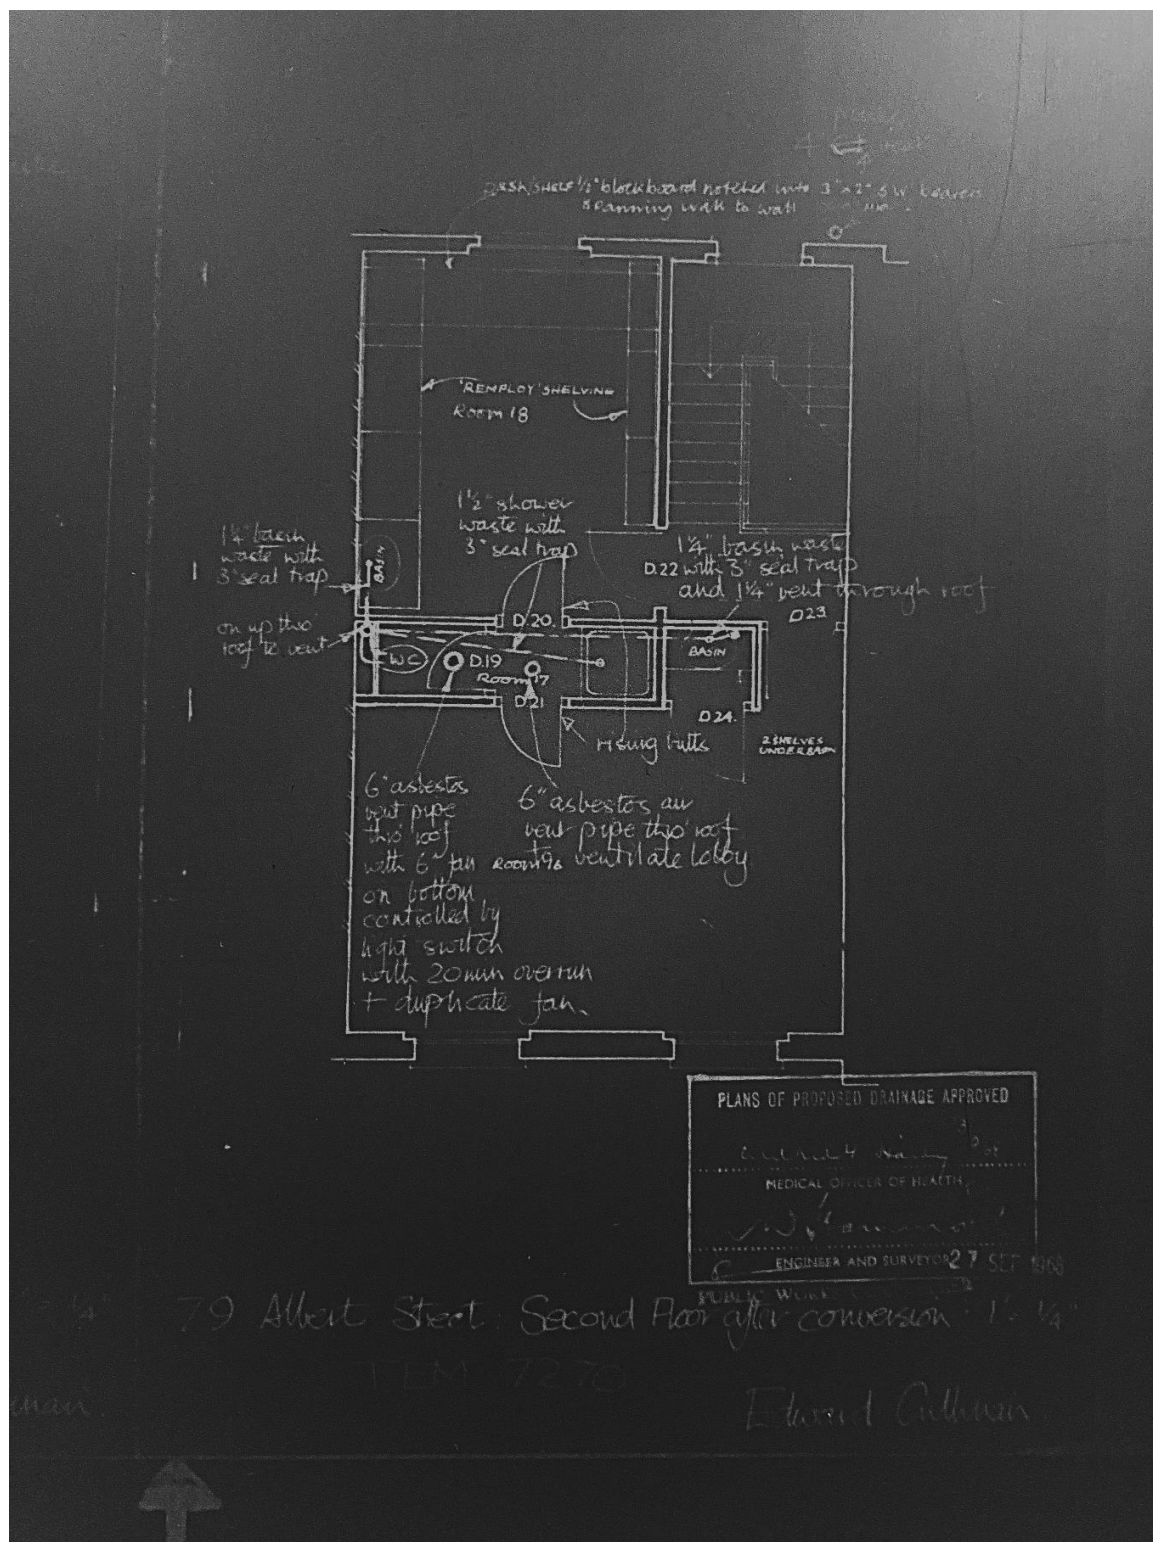 DESK/SHELF 1/2" blockboard notched into 3" x 2" S.W. bearers
spanning wall to wall
'REMPLOY' SHELVING
Room 18
1½" shower
waste with
3" seal trap
1¼" basin
waste with
3" seal trap
BASIN
1¼" basin waste
D.22 with 3" seal trap
and 1¼" vent through roof
D23.
on up thro'
roof to vent
D.20.
WC
D.19
Room 17
BASIN
D.21
D24.
rising butts
2 SHELVES
UNDER BASIN
6" asbestos
vent pipe
thro' roof
with 6" fan
on bottom
controlled by
light switch
with 20 min overrun
+ duplicate fan.
6" asbestos air
vent pipe thro' roof
ventilate lobby
ROOM
PLANS OF PROPOSED DRAINAGE APPROVED
MEDICAL OFFICER OF HEALTH
ENGINEER AND SURVEYOR 27 SEP 1968
PUBLIC WORKS
79 Albert Street: Second Floor after conversion
TEM
Edward Cullinan